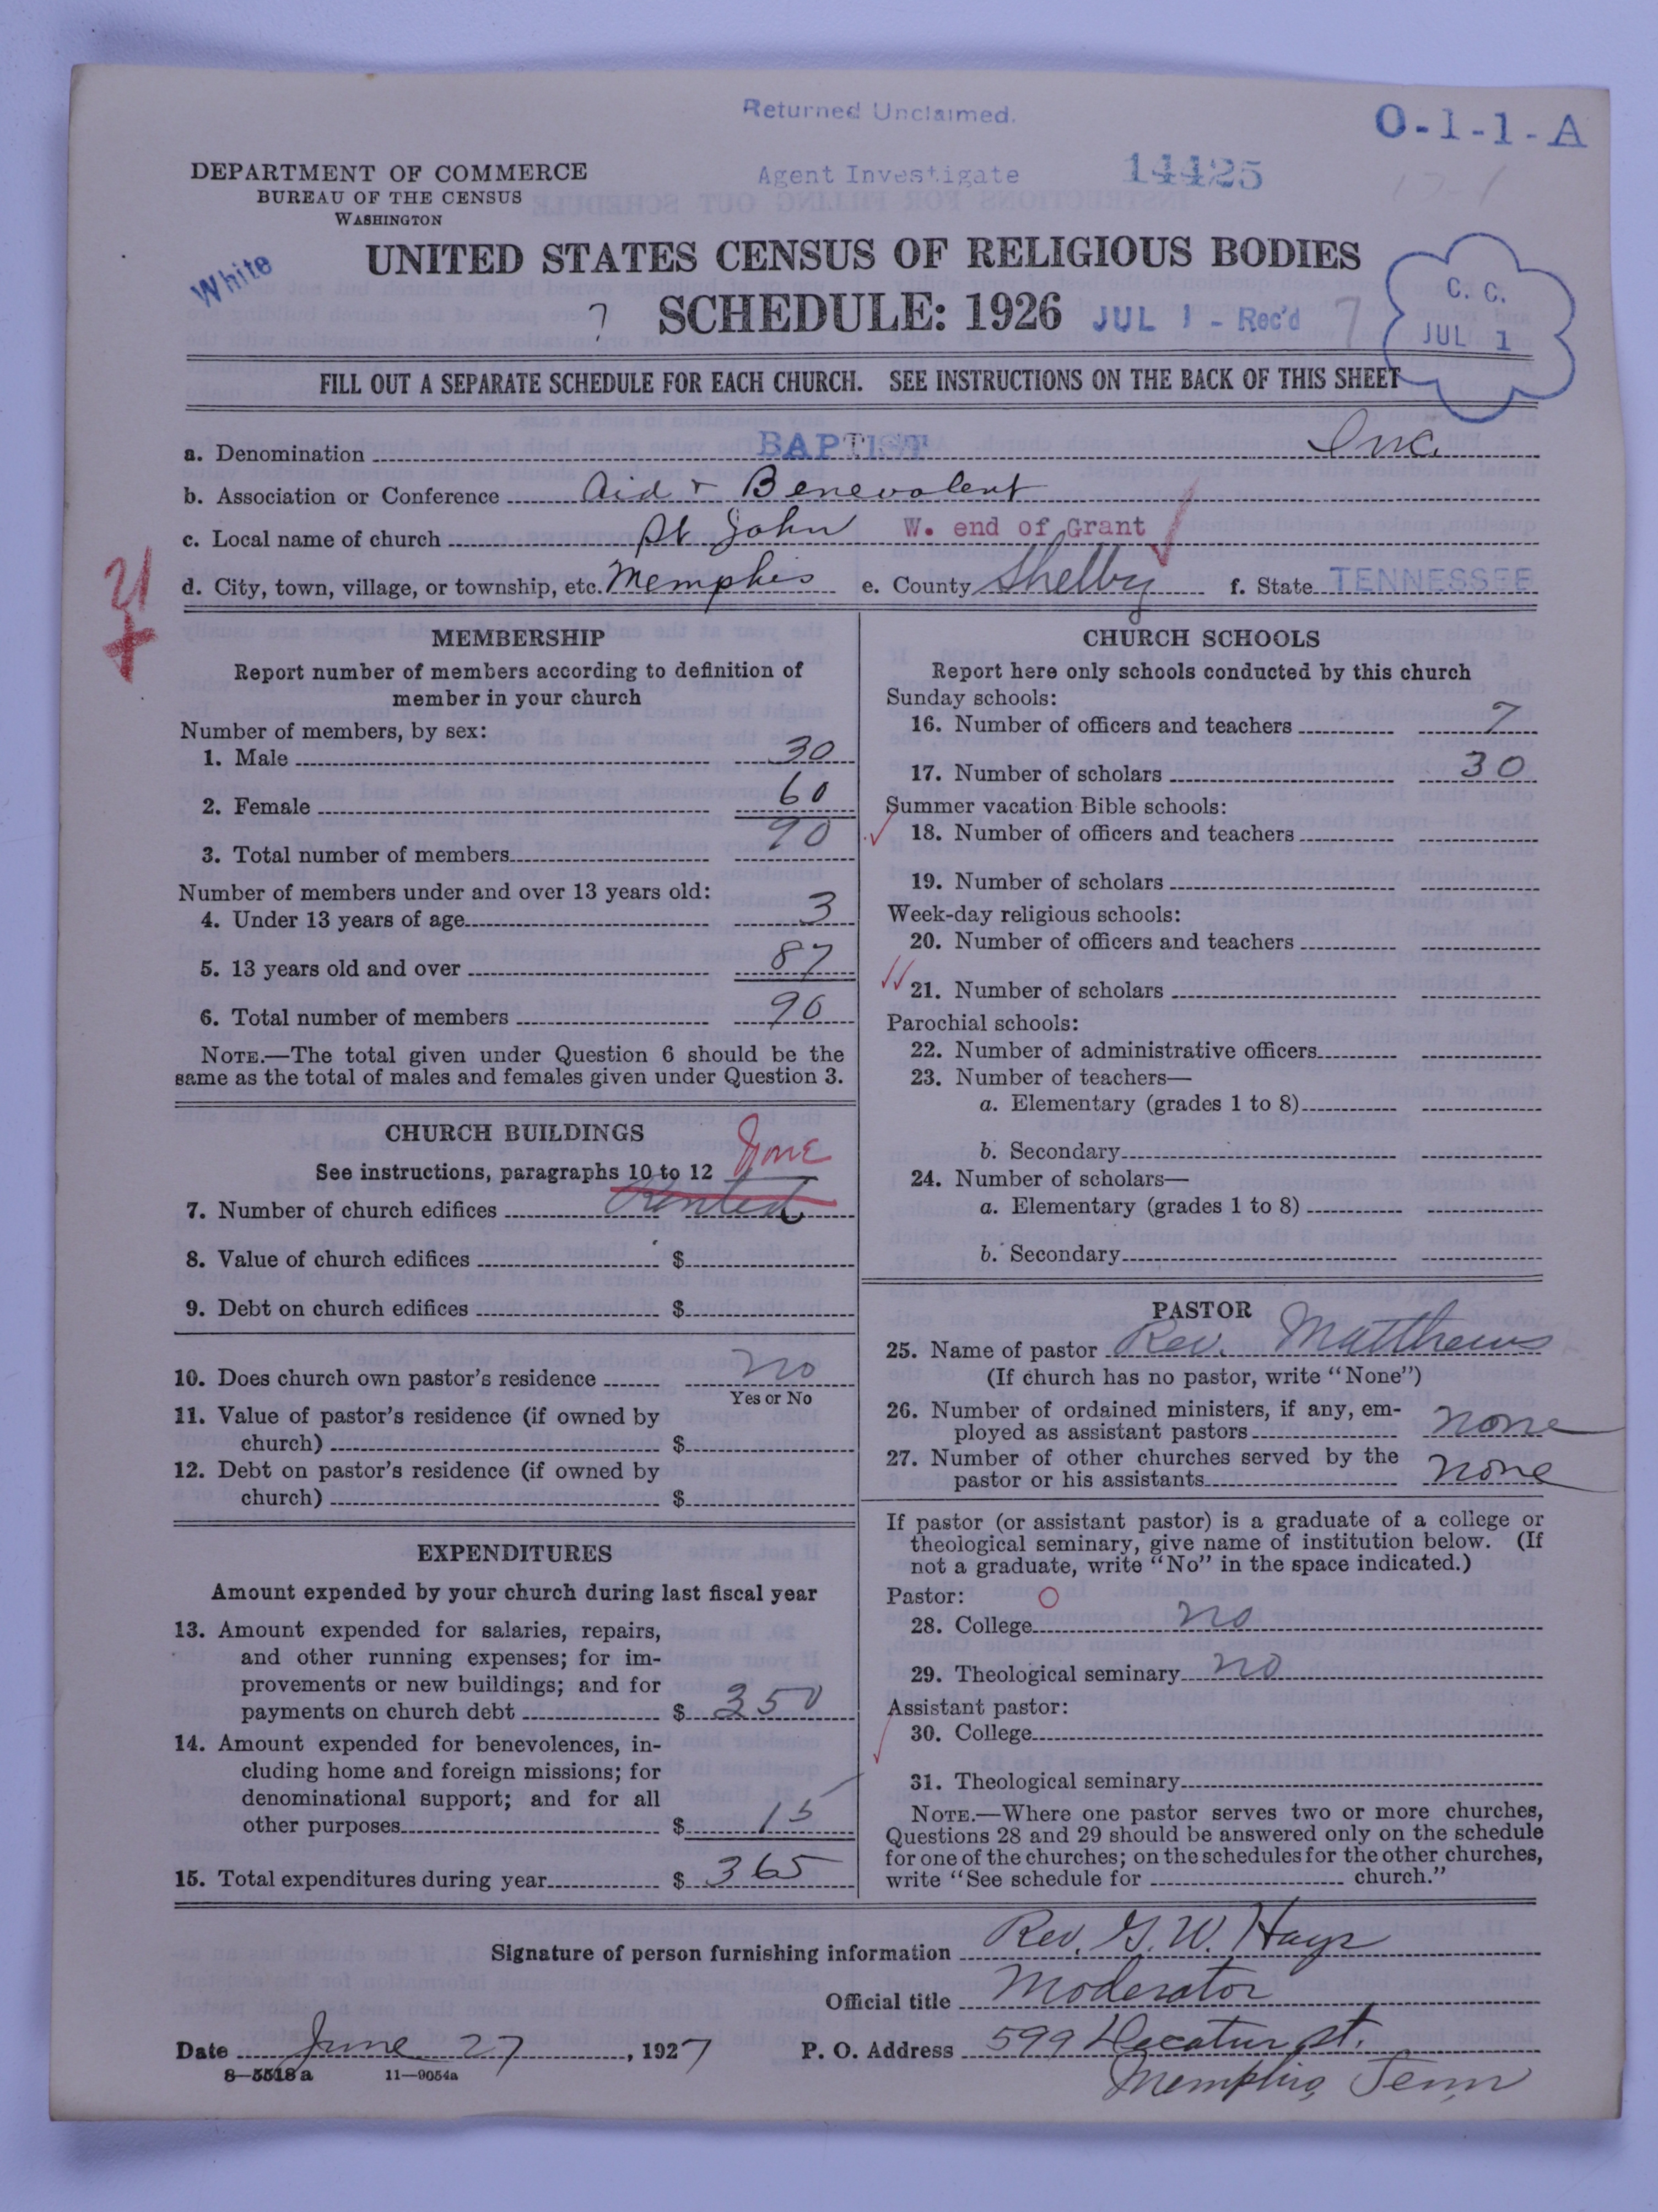 Returned Unclaimed.
O-1-1-A
DEPARTMENT OF COMMERCE
BUREAU OF THE CENSUS
WASHINGTON
Agent Investigate 14425
17-1
White
UNITED STATES CENSUS OF RELIGIOUS BODIES
? SCHEDULE: 1926 JUL 1 - Rec'd 7
C. C.
JUL 1
FILL OUT A SEPARATE SCHEDULE FOR EACH CHURCH. SEE INSTRUCTIONS ON THE BACK OF THIS SHEET
a. Denomination BAPTIST Inc.
b. Association or Conference Aid & Benevolent
c. Local name of church St John W. end of Grant
d. City, town, village, or township, etc. Memphis e. County Shelby f. State TENNESSEE
MEMBERSHIP
Report number of members according to definition of
member in your church
Number of members, by sex:
1. Male 30
2. Female 60
3. Total number of members 90
Number of members under and over 13 years old:
4. Under 13 years of age 3
5. 13 years old and over 87
6. Total number of members 90
NOTE.—The total given under Question 6 should be the
same as the total of males and females given under Question 3.
CHURCH BUILDINGS
See instructions, paragraphs 10 to 12 None
7. Number of church edifices Rented
8. Value of church edifices $
9. Debt on church edifices $
10. Does church own pastor's residence no
Yes or No
11. Value of pastor's residence (if owned by
church) $
12. Debt on pastor's residence (if owned by
church) $
EXPENDITURES
Amount expended by your church during last fiscal year
13. Amount expended for salaries, repairs,
and other running expenses; for im-
provements or new buildings; and for
payments on church debt $ 350
14. Amount expended for benevolences, in-
cluding home and foreign missions; for
denominational support; and for all
other purposes $ 15
15. Total expenditures during year $ 365
CHURCH SCHOOLS
Report here only schools conducted by this church
Sunday schools:
16. Number of officers and teachers 7
17. Number of scholars 30
Summer vacation Bible schools:
18. Number of officers and teachers
19. Number of scholars
Week-day religious schools:
20. Number of officers and teachers
21. Number of scholars
Parochial schools:
22. Number of administrative officers
23. Number of teachers—
a. Elementary (grades 1 to 8)
b. Secondary
24. Number of scholars—
a. Elementary (grades 1 to 8)
b. Secondary
PASTOR
25. Name of pastor Rev. Matthews
(If church has no pastor, write "None")
26. Number of ordained ministers, if any, em-
ployed as assistant pastors none
27. Number of other churches served by the
pastor or his assistants none
If pastor (or assistant pastor) is a graduate of a college or
theological seminary, give name of institution below. (If
not a graduate, write "No" in the space indicated.)
Pastor: O
28. College no
29. Theological seminary no
Assistant pastor:
30. College
31. Theological seminary
NOTE.—Where one pastor serves two or more churches,
Questions 28 and 29 should be answered only on the schedule
for one of the churches; on the schedules for the other churches,
write "See schedule for church."
Signature of person furnishing information Rev. G. W. Hays
Official title Moderator
Date June 27, 1927 P. O. Address 599 Decatur St.
8—5518a 11—9054a Memphis, Tenn